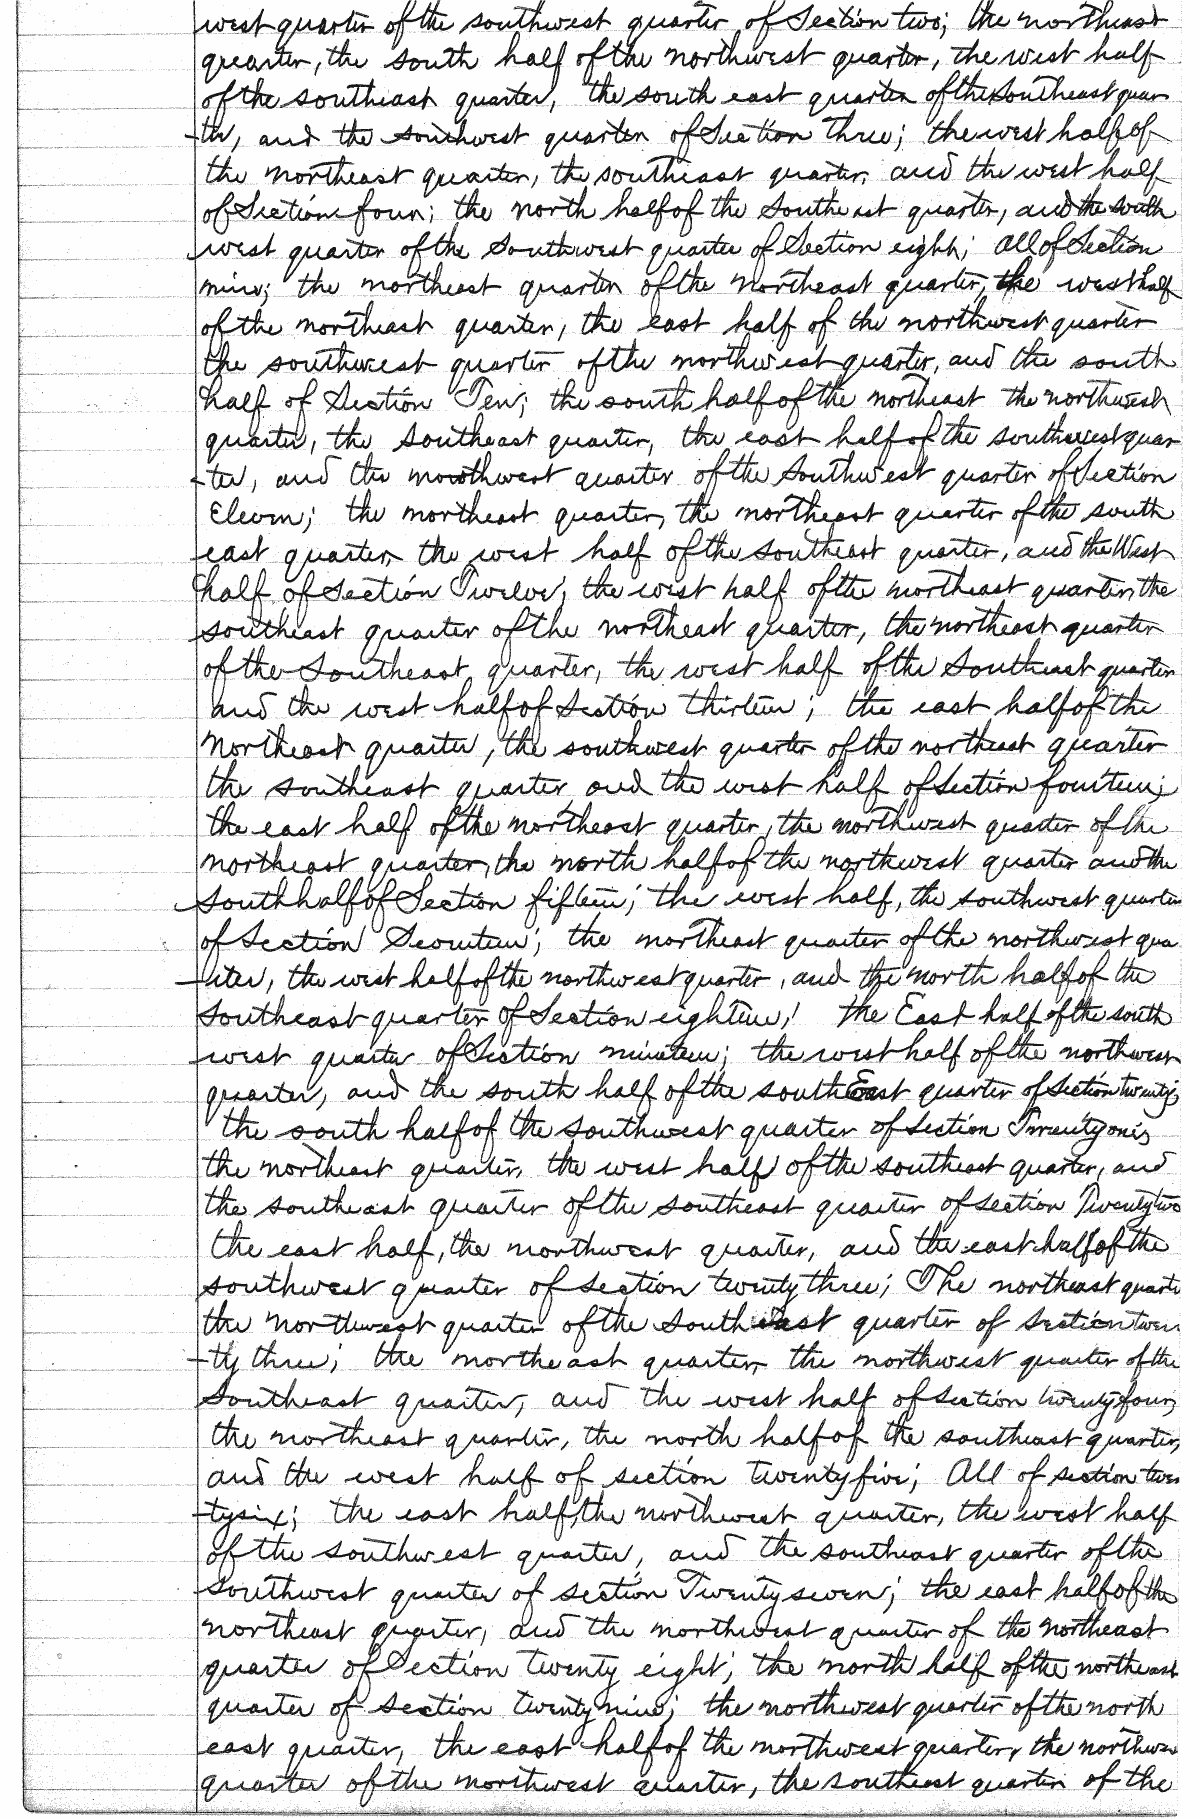 west quarter of the southwest quarter of Section two; the northeast
quarter, the south half of the northwest quarter, the west half
of the southeast quarter, the south east quarter of the Southeast quar
-ter, and the southwest quarter of Section Three; the west half of
the northeast quarter, the southeast quarter, and the west half
of Section four; the north half of the Southeast quarter, and the south
west quarter of the Southwest quarter of Section eight; all of Section
nine; the northeast quarter of the Northeast quarter, the west half
of the northeast quarter, the east half of the northwest quarter
the southwest quarter of the northwest quarter, and the south
half of Section Ten; the south half of the northeast the northwest
quarter, the southeast quarter, the east half of the southwest quar
-ter, and the northwest quarter of the Southwest quarter of Section
Eleven; the northeast quarter, the northeast quarter of the south
east quarter, the west half of the southeast quarter, and the West
half of Section Twelve; the west half of the northeast quarter, the
southeast quarter of the northeast quarter, the northeast quarter
of the Southeast quarter, the west half of the Southeast quarter
and the west half of Section thirteen; the east half of the
Northeast quarter, the southwest quarter of the northeast quarter
the southeast quarter and the west half of Section fourteen;
the east half of the northeast quarter, the northwest quarter of the
northeast quarter, the north half of the northwest quarter and the
south half of Section fifteen; the west half, the southwest quarter
of Section Seventeen; the northeast quarter of the northwest qua
-rter, the west half of the northwest quarter, and the north half of the
Southeast quarter of Section eighteen; the East half of the south
west quarter of Section nineteen; the west half of the northwest
quarter, and the south half of the south East quarter of Section twenty;
the south half of the Southwest quarter of Section Twenty one;
the northeast quarter, the west half of the southeast quarter, and
the southeast quarter of the southeast quarter of section Twenty two
the east half, the northwest quarter, and the east half of the
southwest quarter of section twenty three; The northeast quarte
the Northwest quarter of the South east quarter of section twen
-ty three; the northeast quarter, the northwest quarter of the
Southeast quarter, and the west half of section twenty four,
the northeast quarter, the north half of the southeast quarter,
and the west half of section twenty five; All of section twen
-ty six; the east half, the northwest quarter, the west half
of the southwest quarter, and the southeast quarter of the
southwest quarter of section Twenty seven; the east half of the
northeast quarter, and the northwest quarter of the northeast
quarter of Section twenty eight; the north half of the northeast
quarter of section twenty nine; the northwest quarter of the north
east quarter, the east half of the northwest quarter, the northwes
quarter of the northwest quarter, the southeast quarter of the